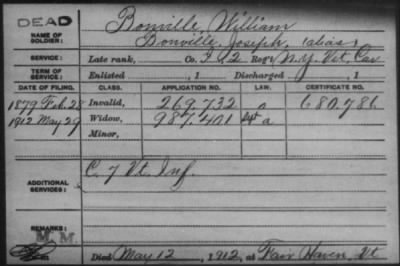 DEAD
NAME OF SOLDIER: Bonville William
Bonville, Joseph, (alias)
SERVICE: Late rank, Co. I, 2 Reg't N.Y. Vet. Cav
TERM OF SERVICE: Enlisted , 1 Discharged , 1
DATE OF FILING. CLASS. APPLICATION NO. LAW. CERTIFICATE NO.
1879 Feb. 28 Invalid, 269.732 680.786
1912 May 29 Widow, 987.401 a
Minor,
ADDITIONAL SERVICES: C. 7 Vt. Inf.
REMARKS:
M. M.
Died May 12, 1912, at Fair Haven, Vt